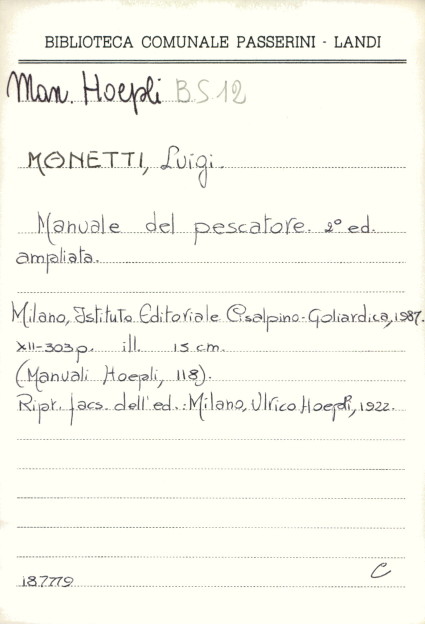 BIBLIOTECA COMUNALE PASSERINI - LANDI
Man. Hoepli B.S.12
MANETTI, Luigi.
Manuale del pescatore. 2° ed.
ampliata.
Milano, Istituto Editoriale Cisalpino-Goliardica, 1987.
XII-303 p. ill. 15 cm.
(Manuali Hoepli, 118).
Ripr. facs. dell'ed.: Milano, Ulrico Hoepli, 1922.
187779 C